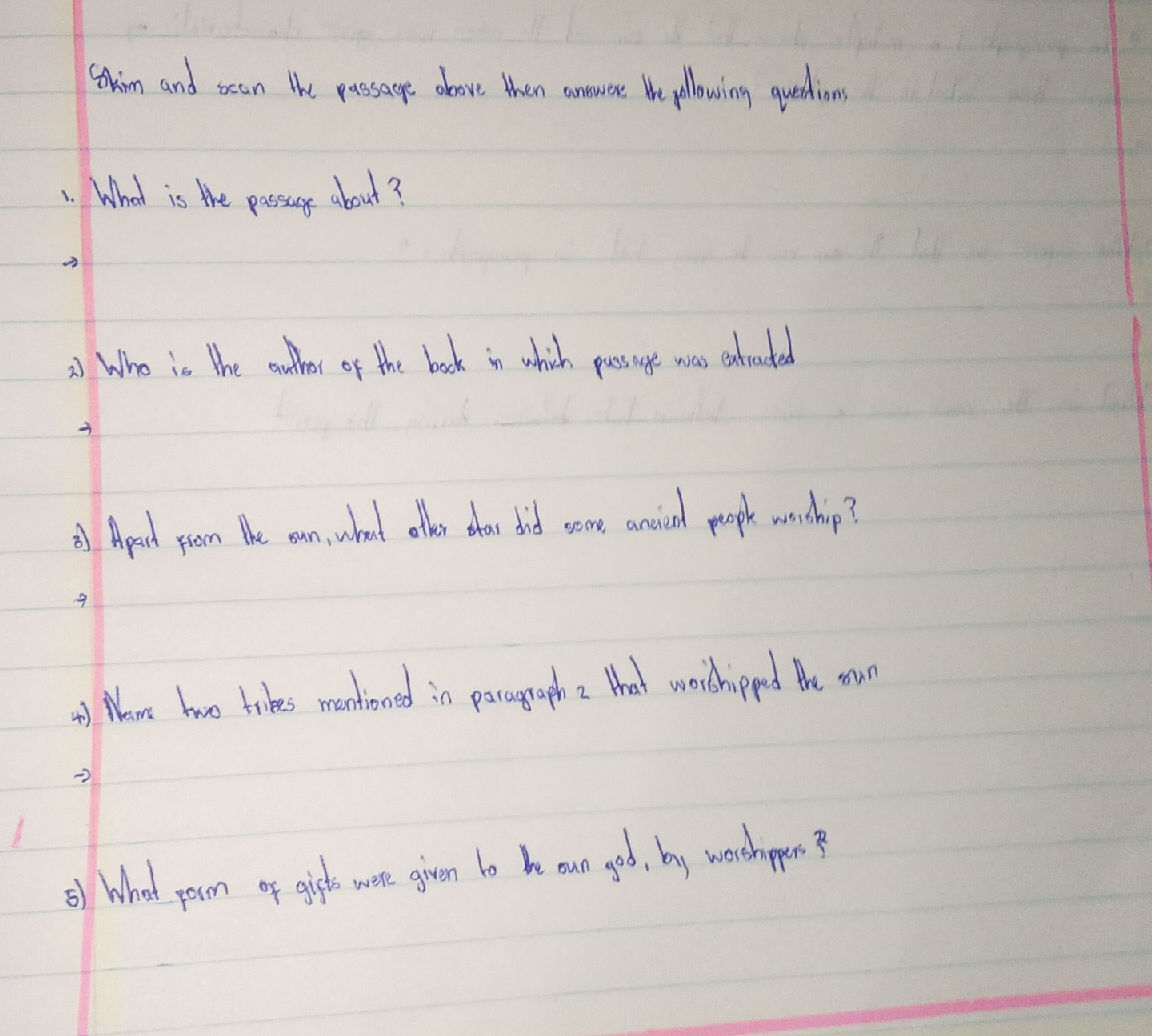 Skim and scan the passage above then answers the following questions
1. What is the passage about?
→
2) Who is the author of the book in which passage was extracted
→
3) Apart from the sun, what other star did some ancient people worship?
→
4) Name two tribes mentioned in paragraph 2 that worshipped the sun
→
5) What form of gifts were given to the sun god, by worshippers?